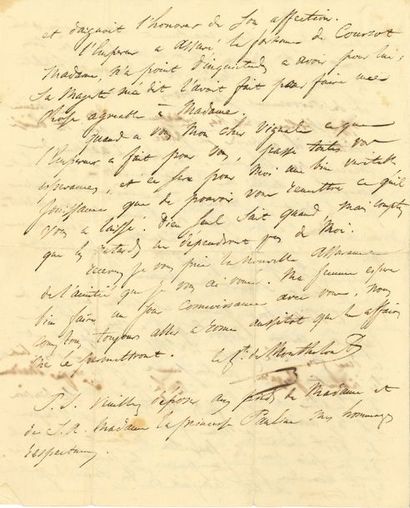 et daignoit l'honorer de Son affection.
l'Empereur a assuré la fortune de Coursot
Madame, n'a point d'inquiétude a avoir pour lui;
Sa Majesté m'a dit l'avoir fait pour faire une
chose agreable à Madame.
Quand a vous Mon cher Vignale ce que
l'Empereur a fait pour vous, passe toutes vos
esperances, et ce sera pour Moi une bien veritable
jouissance que de pouvoir vous remettre ce qu'il
vous a laissé. Dieu seul sait quand, mais comptez
que les retards ne dépendront pas de Moi.
recevez je vous prie la nouvelle assurance
de l'amitié que je vous ai vouée. Ma femme espere
bien faire un jour connoissance avec vous. Nous
comptons toujours aller a Rome aussitot que les affaires
me le permettront. le Cte de Montholon
P.S. veuillez déposer aux pieds de Madame et
de S.A. Madame la princesse Pauline mes hommages
respectueux.